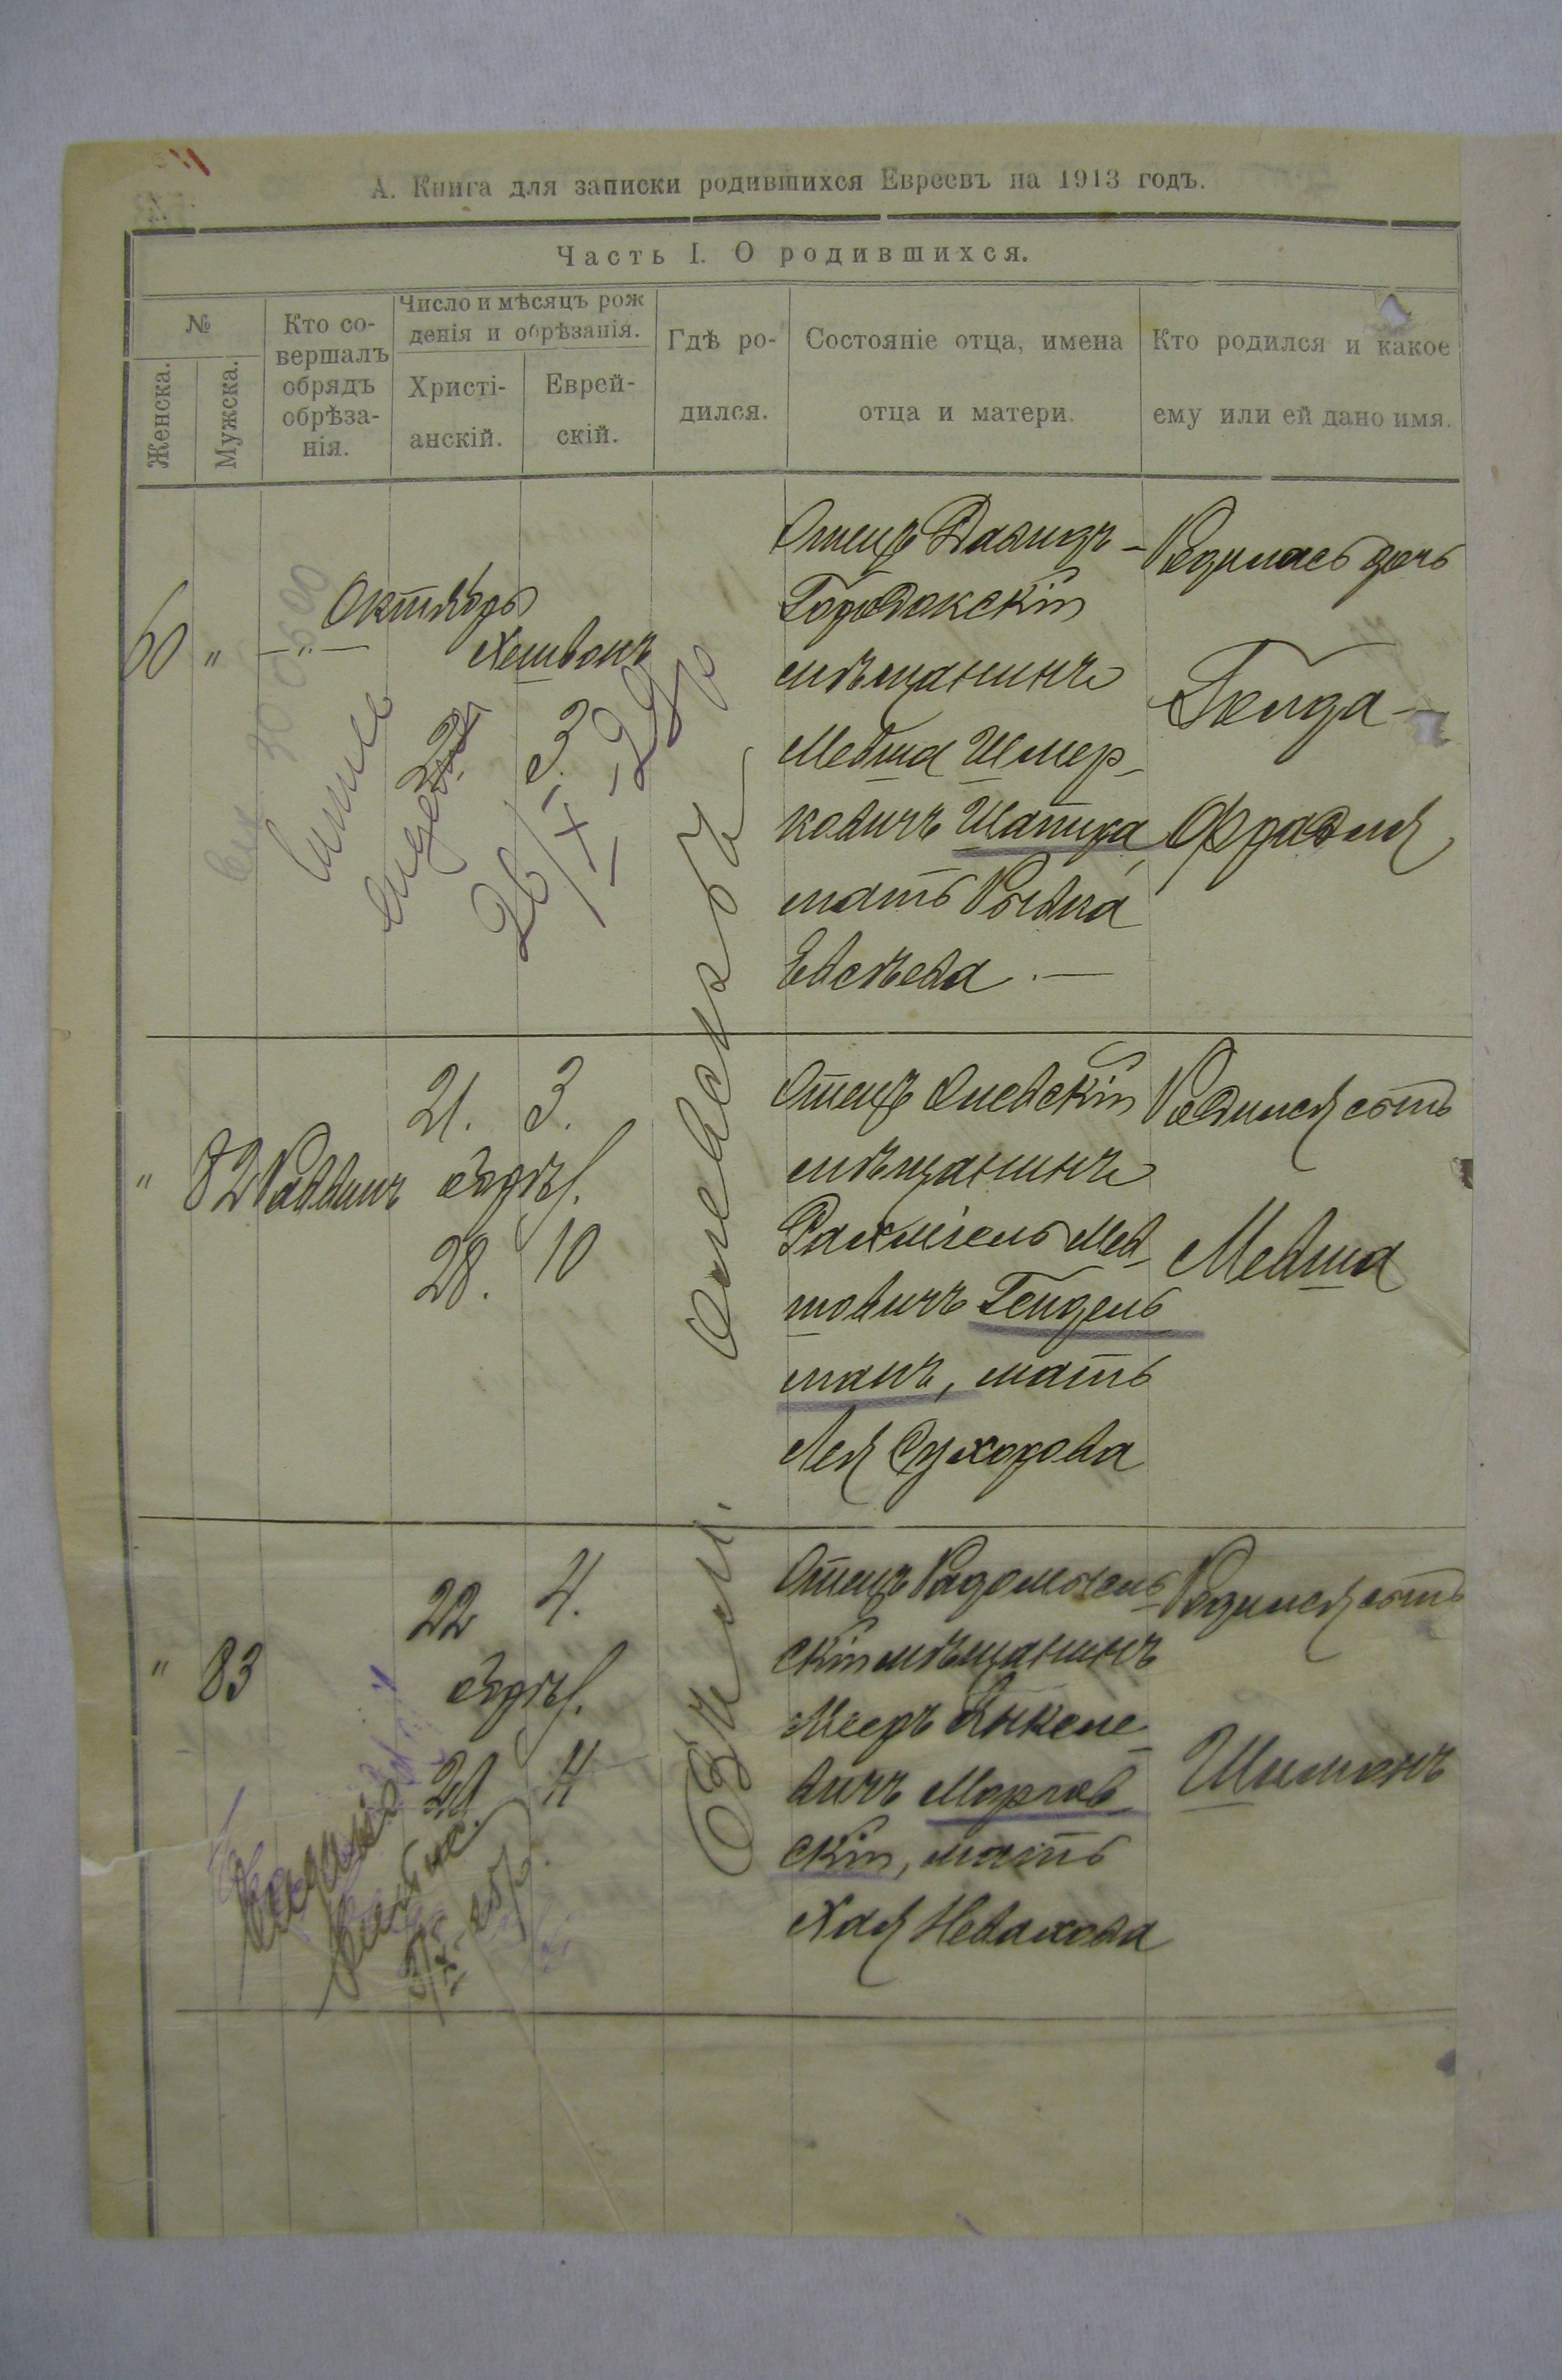 А. Книга для записки родившихся Евреевъ на 1913 годъ.
Часть I. О родившихся.
№
Женска.
Мужска.
Кто со-
вершалъ
обрядъ
обрѣза-
нія.
Число и мѣсяцъ рож
денія и обрѣзанія.
Христі-
анскій.
Еврей-
скій.
Гдѣ ро-
дился.
Состояніе отца, имена
отца и матери.
Кто родился и какое
ему или ей дано имя.
60 " —"—
Октябрь
Хешвонъ
21 3.
26/X–29 р
Отецъ Давидъ-
Городокскій
мѣщанинъ
Мевша Шмер-
ковичъ Шапира
мать Рывка
Евсѣева . —
Родилась дочь
Генда-
Фрадля
Олевскъ
" 82 Раввинъ
21. 3.
обрѣз.
28. 10
Отецъ Олевскій
мѣщанинъ
Рахміель Мев-
шовичъ Гендель
манъ, мать
Лея Сухорова
Родился сынъ
Мевша
" 83
22 4.
обрѣз.
Отецъ Радомысль-
скій мѣщанинъ
Мееръ Янкеле-
вичъ Моргов-
скій, мать
Хая Невахова
Родился сынъ
Шимонъ